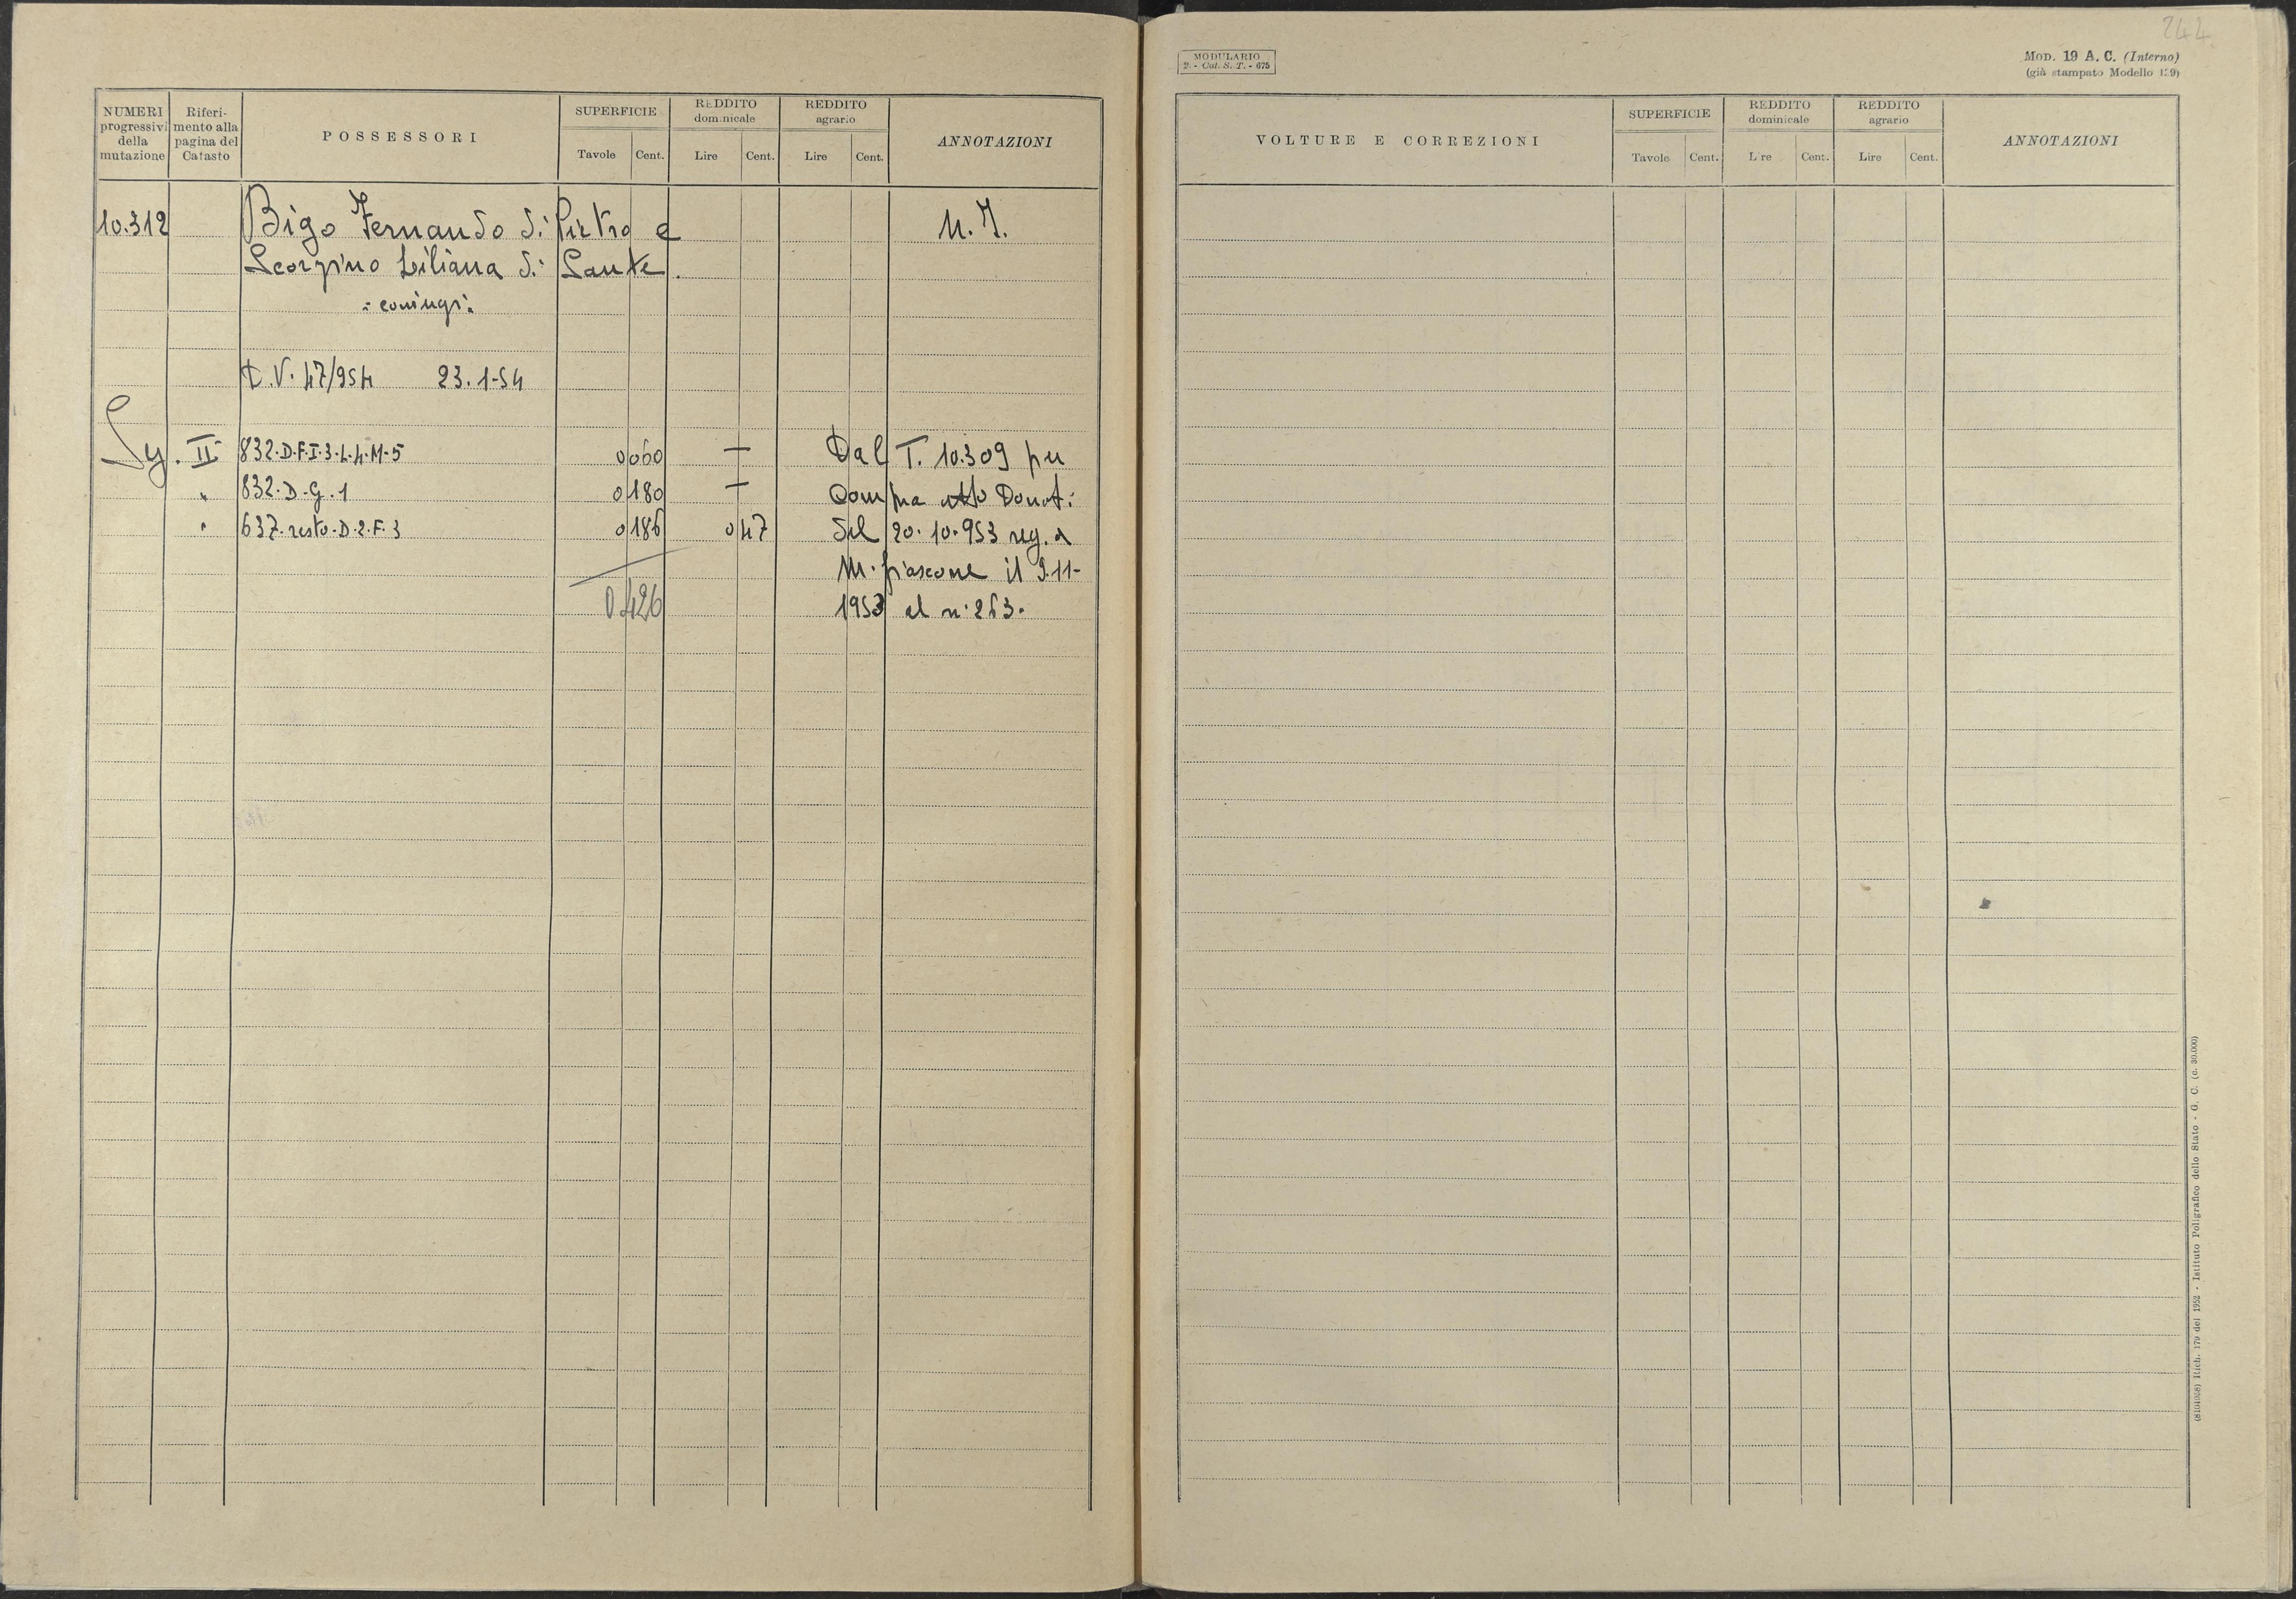 NUMERI progressivi della mutazione
Riferimento alla pagina del Catasto
POSSESSORI
SUPERFICIE
Tavole Cent.
REDDITO dominicale
Lire Cent.
REDDITO agrario
Lire Cent.
ANNOTAZIONI
10.312 Bigo Fernando di Pietro e
Scorzino Liliana di Sante.
= coniugi:
M. I.
D.V. 47/954 23.1-54
II 832.D.F.I.3.L.4.M.5 0 060 — Dal T. 10.309 per
" 832.D.G.1 0 180 — Compra atto Donati
" 637.resto.D.2.F.3 0 186 0 47 del 20.10.953 reg. a
M.fiascone il 9.11-
0 426 1953 al n. 263.
244
MODULARIO
2. - Cat. S. T. - 675
MOD. 19 A. C. (Interno)
(già stampato Modello 129)
VOLTURE E CORREZIONI
SUPERFICIE
Tavole Cent.
REDDITO dominicale
Lire Cent.
REDDITO agrario
Lire Cent.
ANNOTAZIONI
Rich. 179 del 1952 - Istituto Poligrafico dello Stato - G. C. (c. 30.000)